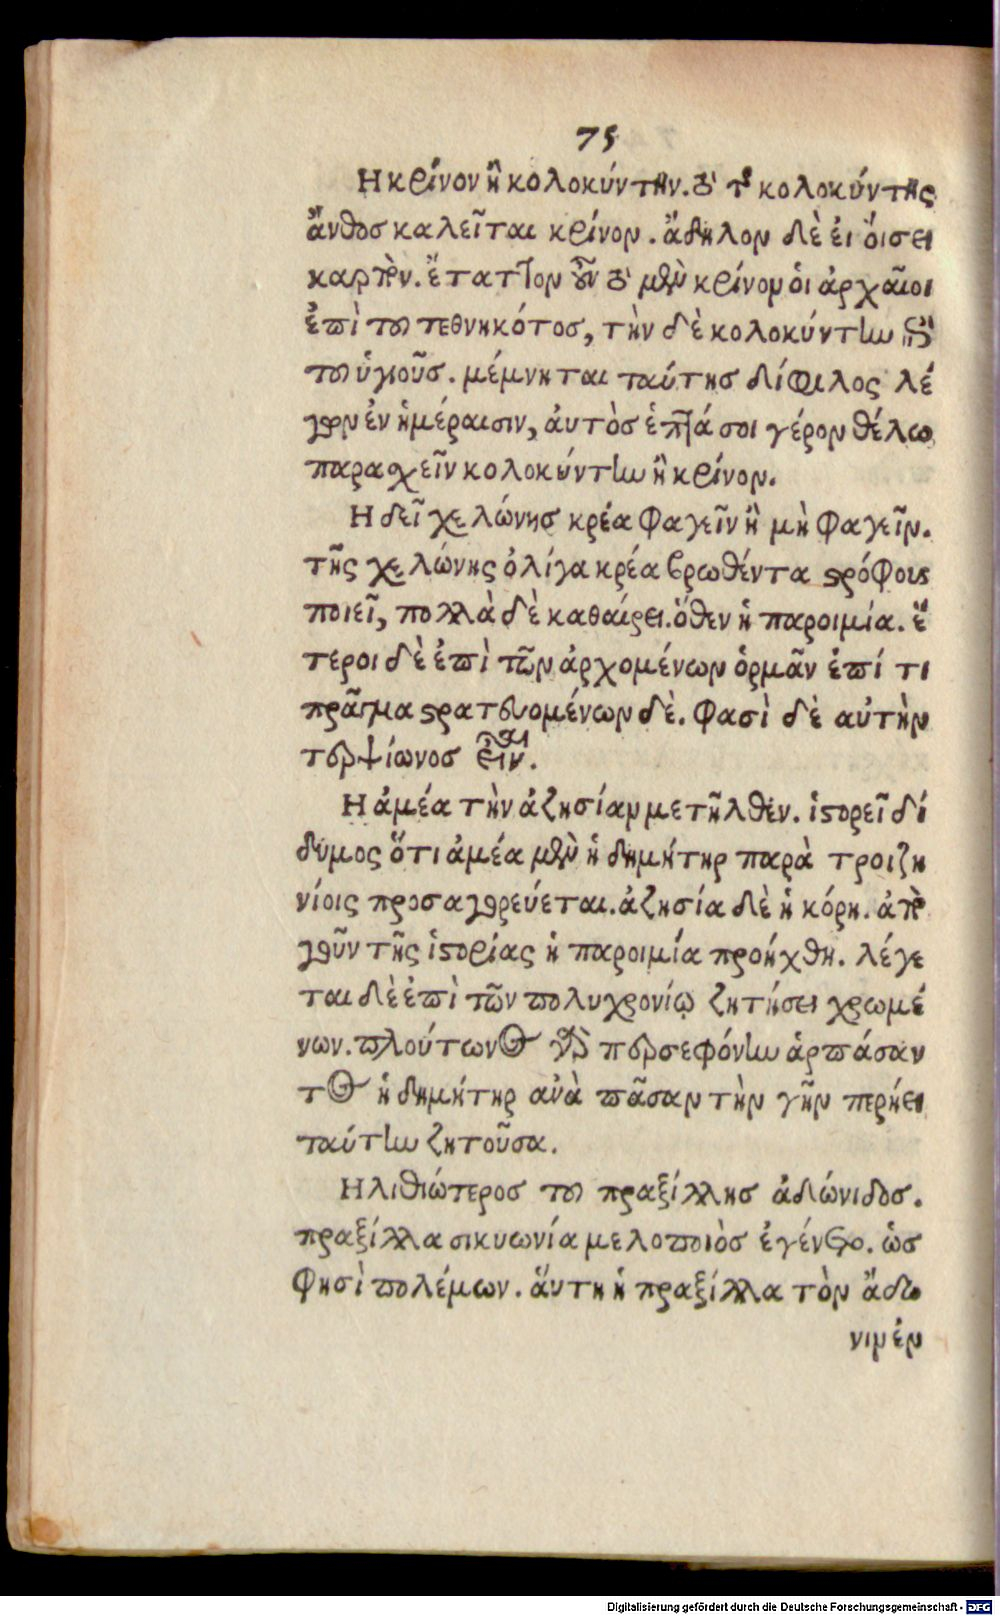 75
Η κρίνον ἢ κολοκύντην. τὸ τῆς κολοκύντης
ἄνθος καλεῖται κρίνον. ἄδηλον δὲ εἰ ὄισει
καρπὸν. ἔταττον οὖν τὸ μὲν κρίνον ὁι ἀρχαῖοι
ἐπὶ του τεθνηκότος, τὴν δὲ κολοκύντην ἐπὶ
του ὑγιοῦς. μέμνηται ταύτης δίφιλος λέ
γων ἐν ἡμέραισιν, ἀυτὸς ἑπτά σοι γέρον θέλω
παραχεῖν κολοκύντην ἢ κρίνον.
Η δεῖ χελώνης κρέα φαγεῖν ἢ μὴ φαγεῖν.
τῆς χελώνης ὀλίγα κρέα βρωθέντα στρόφους
ποιεῖ, πολλὰ δὲ καθαίρει. ὅθεν ἡ παροιμία. ἕ
τεροι δὲ ἐπὶ τῶν ἀρχομένων ὁρμᾶν ἐπί τι
πρᾶγμα στρατευομένων δὲ. φασὶ δὲ αὐτὴν
τερψίωνος εἶναι.
Η ἀμέα τὴν ἀζησίαν μετῆλθεν. ἱστορεῖ δί
δυμος ὅτι ἀμέα μὲν ἡ δημήτηρ παρὰ τροιζη
νίοις προσαγορεύεται. ἀζησία δὲ ἡ κόρη. ἀπὸ
γοῦν τῆς ἱστορίας ἡ παροιμία προήχθη. λέγε
ται δὲ ἐπὶ τῶν πολυχρονίῳ ζητήσει χρωμέ
νων. πλούτωνος γὰρ περσεφόνην ἁρπάσαν
τος ἡ δημήτηρ ανὰ πᾶσαν τὴν γῆν περιήει
ταύτην ζητοῦσα.
Ηλιθιώτερος του πραξίλλης ἀδώνιδος.
πραξίλλα σικυωνία μελοποιὸς ἐγένετο. ὡς
φησὶ πολέμων. ἅυτη ἡ πραξίλλα τὸν ἄδω
νιν ἐν
Digitalisierung gefördert durch die Deutsche Forschungsgemeinschaft - DFG